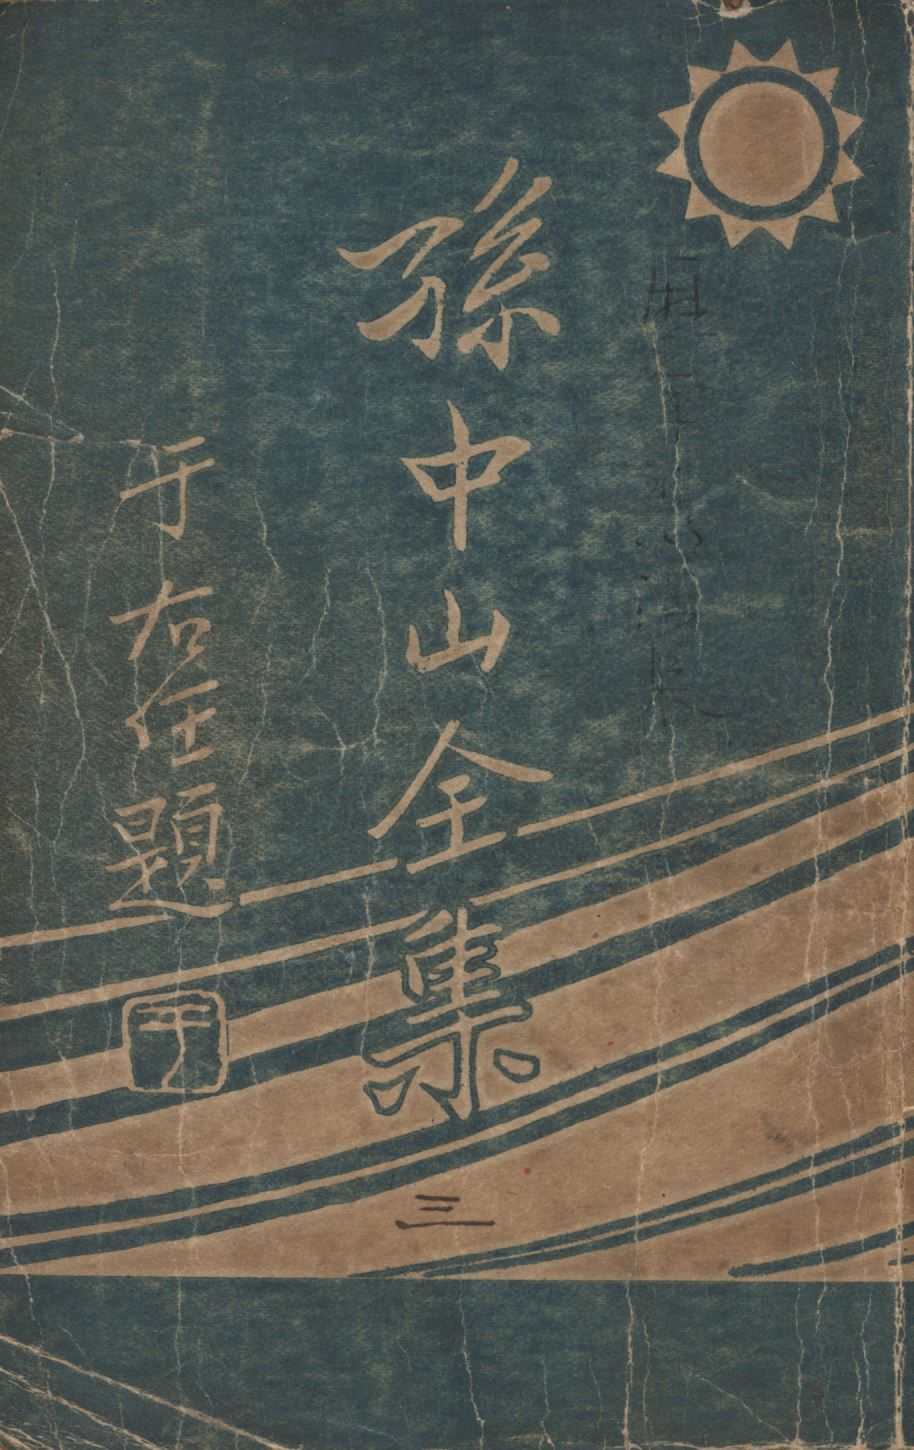 孫中山全集
三
于右任題
于